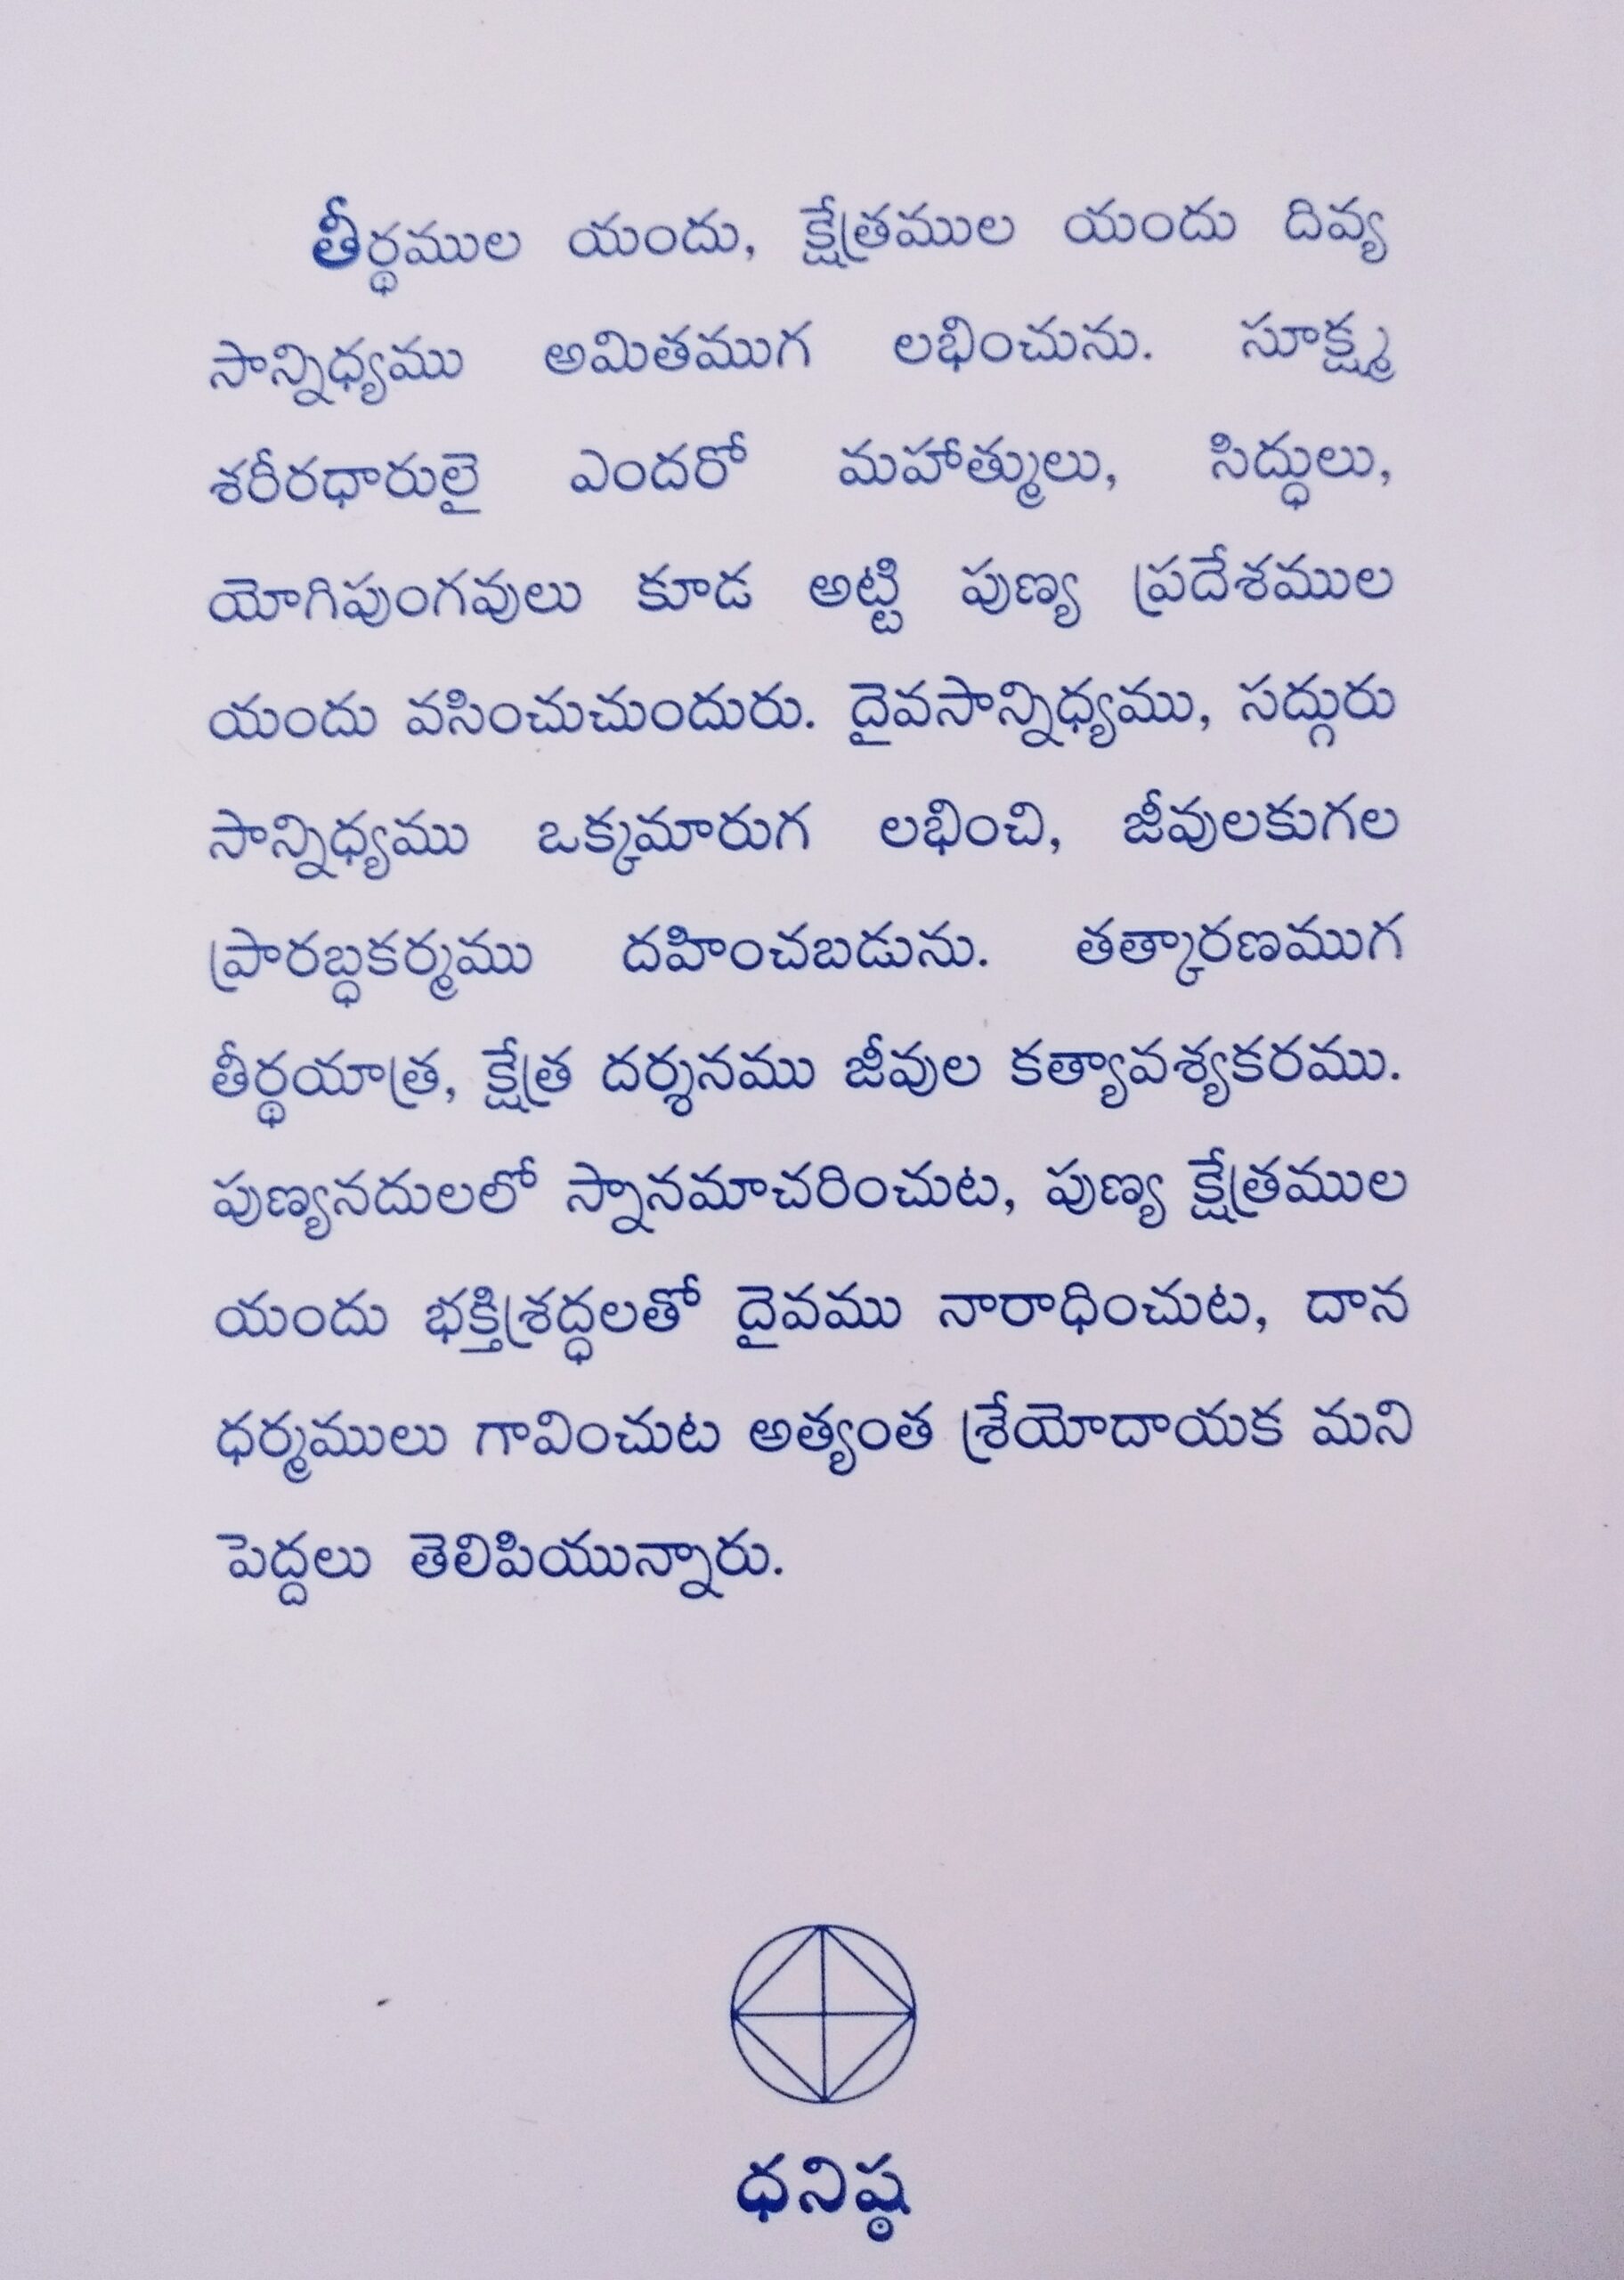 తీర్థముల యందు, క్షేత్రముల యందు దివ్య
సాన్నిధ్యము అమితముగ లభించును. సూక్ష్మ
శరీరధారులై ఎందరో మహాత్ములు, సిద్ధులు,
యోగిపుంగవులు కూడ అట్టి పుణ్య ప్రదేశముల
యందు వసించుచుందురు. దైవసాన్నిధ్యము, సద్గురు
సాన్నిధ్యము ఒక్కమారుగ లభించి, జీవులకుగల
ప్రారబ్ధకర్మము దహించబడును. తత్కారణముగ
తీర్థయాత్ర, క్షేత్ర దర్శనము జీవుల కత్యావశ్యకరము.
పుణ్యనదులలో స్నానమాచరించుట, పుణ్య క్షేత్రముల
యందు భక్తిశ్రద్ధలతో దైవము నారాధించుట, దాన
ధర్మములు గావించుట అత్యంత శ్రేయోదాయక మని
పెద్దలు తెలిపియున్నారు.
ధనిష్ఠ